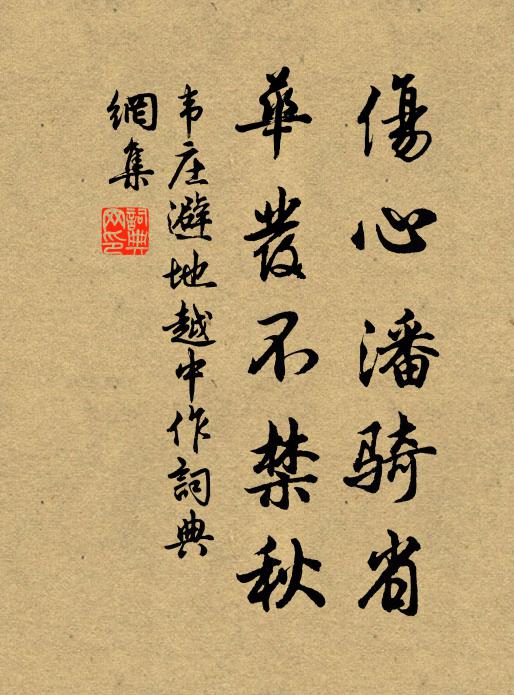 傷心潘騎省
華發不禁秋
韦庄避地越中作詞典
網集
詞典網印